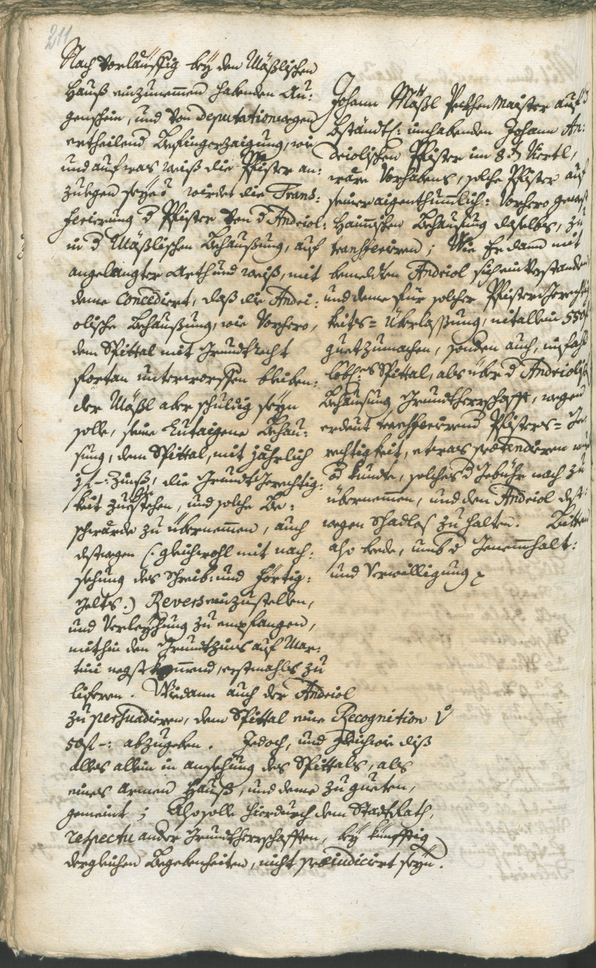 211
Nach vorläuffig bey den Mäßlischen
Hauß einzunemmen habenden Au:
genschein, und von Deputationwegen
ertheilend
und auf was weiß die Pfister an:
zulegen seye, würdet die Trans:
ferierung d Pfister von d Andriol:
in d Mäßlischen Behaußung, auf
angelangter Arth und weiß, mit
deme Concediert, daß die Andri:
olische Behaußung, wie vorhero,
dem Spittal mit Grundtrecht
fortan unterworffen bleiben:
der Mäßl aber schuldig seyn
solle, seine Eutaigene Behau:
sung, dem Spittal, mit jährlich
Zinß, die Grundt Gerechtig:
keit zustehen, und solche Be:
schwärde zu übernemmen, auch
destwegen (: gleichwohl mit nach:
sehung des Schreib: und förtig:
gelts :) Revers einzustellen,
und Verleyhung zu empfangen,
mithin den Grundtzinß auf Mar:
tini negst kommend, erstmahls zu
liferen. Wie dann auch der Andriol
zu persuadieren, dem Spittal eine Recognition
50 fl -: abzugeben. Jedoch, und gleichwie diß
alles allein in ansehung des Spittals, als
eines armen Hauß, und deme zu gueten,
gemeint; Also solle hierdurch dem Stadt Rath,
respectu ander Grundtherrschafften, bey künfftig
dergleichen Begebenheiten, nicht praeiudiciert seyn.
Johann Mäßl Pekhen Maister auf d
Bständts: innhabenden Johann An:
driolischen Pfister im 8.t Viertl,
wäre Vorhabens, solche Pfister auf
seiner aigenthumblich: vorhero gewest
Behaußung daselbst, zu
transferieren; Wie Er dann mit
bemelten Andriol sich einverstanden
und deme für solcher Pfister Gerechtig
keits= Überlaßung, nit allein 550 fl
guetzumachen, sonder auch, infahl
löbl: Spittal, als über d Andriolisch
Behaußung Grundtherrschafft, wegen
transferirend Pfisters= Ge:
rechtigkeit, etwas praetendiren
kundte, solches d Gebühr nach zu
übernemmen, und den Andriol dest:
wegen schadloß zu halten. Bitten
also beede, umb d Genemmhalt:
und Verwilligung